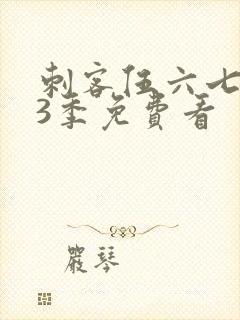 刺客伍六七
3季免費看
嚴琴